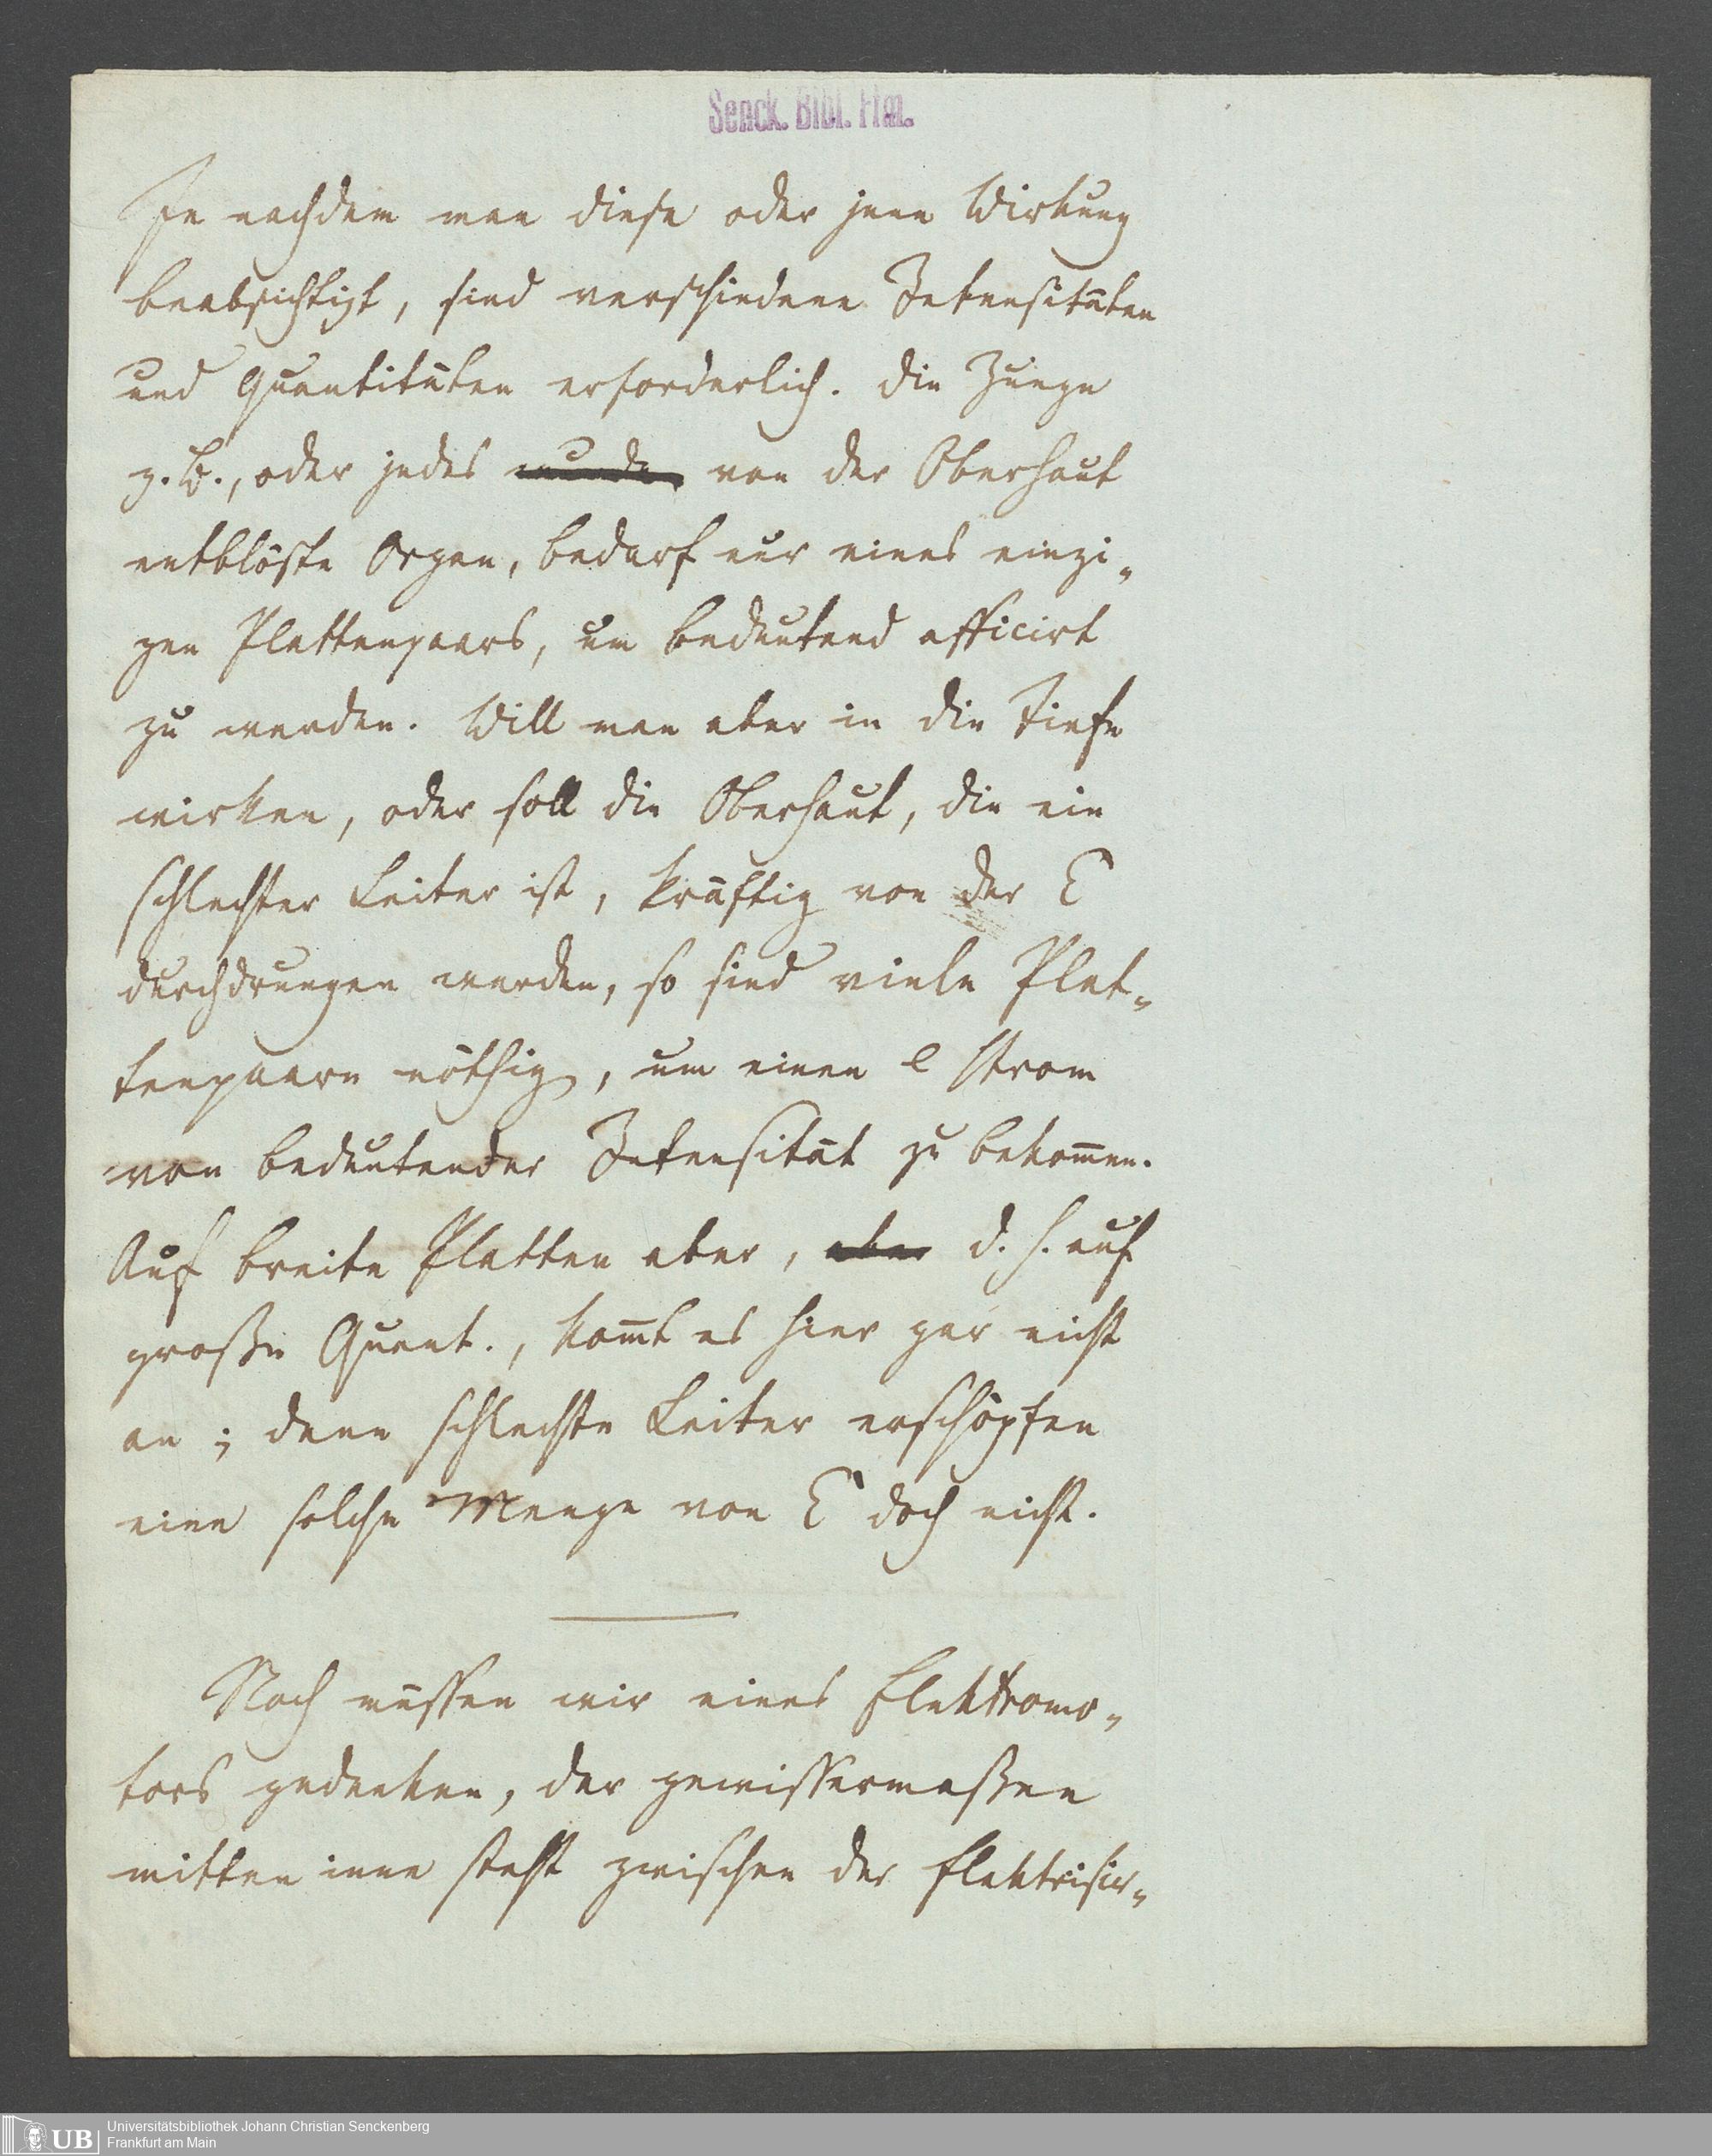 Senck. Bibl. Ffm.
Je nachdem man diese oder jene Wirkung
beabsichtigt, sind verschiedene Intensitäten
und Quantitäten erforderlich. Die Zunge
z. B., oder jedes wunde von der Oberhaut
entblöste Organ, bedarf nur eines einzi„
gen Plattenpaars, um bedeutend afficirt
zu werden. Will man aber in die Tiefe
wirken, oder soll die Oberhaut, die ein
schlechter Leiter ist, kräftig von der E
durchdrungen werden, so sind viele Plat„
tenpaare nöthig, um einen e Strom
von bedeutender Intensität zu bekom̄en.
Auf breite Platten aber, aber d. h. auf
große Quant., kom̄t es hier gar nicht
an; denn schlechte Leiter erschöpfen
eine solche Menge von E doch nicht.
Noch müssen wir eines Elektromo„
tors gedenken, der gewissermaßen
mitten inne steht zwischen der Elektrisir„
UB
Universitätsbibliothek Johann Christian Senckenberg
Frankfurt am Main